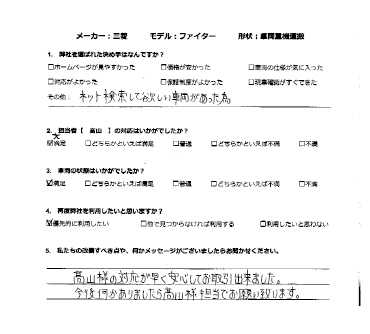 メーカー：三菱　モデル：ファイター　形状：車両重機運搬
1. 弊社を選ばれた決め手はなんですか？
□ホームページが見やすかった　□価格が安かった　□車両の仕様が気に入った
□対応がよかった　□保証制度がよかった　□現車確認がすぐできた
その他：ネット検索して欲しい車両があった為
2. 担当者【 高山 】の対応はいかがでしたか？
☑満足　□どちらかといえば満足　□普通　□どちらかといえば不満　□不満
3. 車両の状態はいかがでしたか？
☑満足　□どちらかといえば満足　□普通　□どちらかといえば不満　□不満
4. 再度弊社を利用したいと思いますか？
☑優先的に利用したい　□他で見つからなければ利用する　□利用したいと思わない
5. 私たちの改善すべき点や、何かメッセージがございましたらお聞かせください。
高山様の対応が早く安心してお取引出来ました。
今後何かありましたら高山様担当でお願い致します。